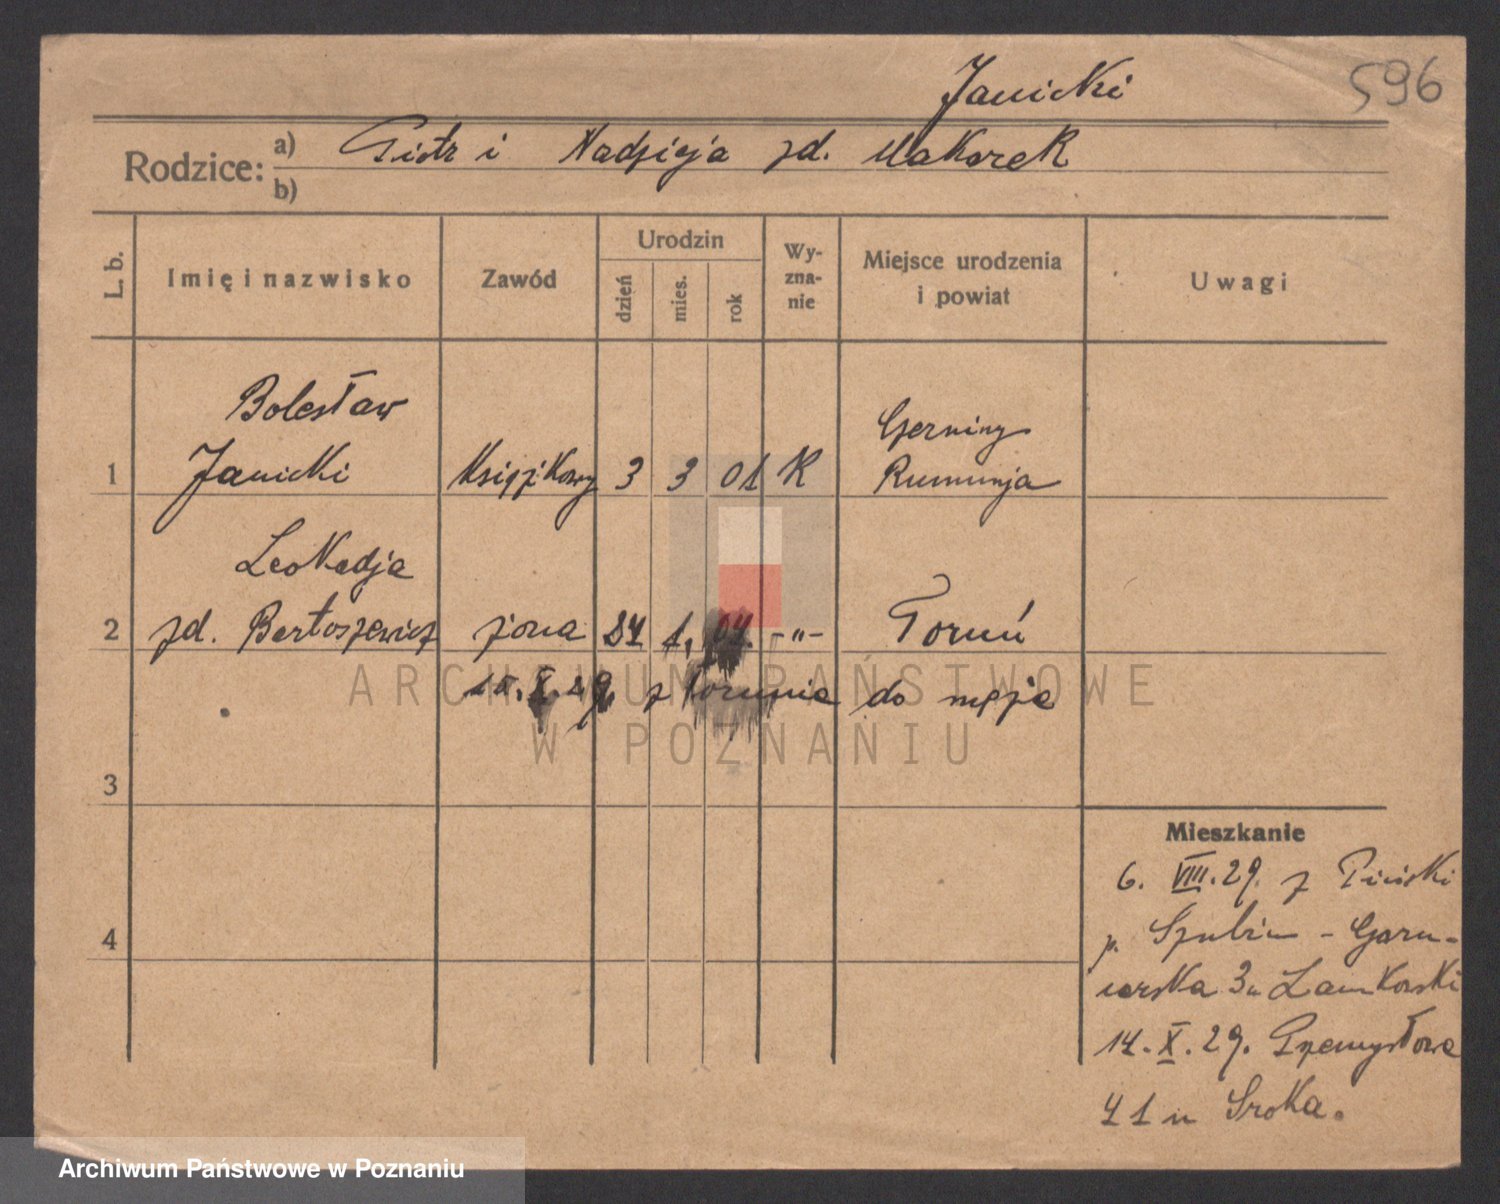 Janicki
596
Rodzice: a) Piotr i Nadzieja zd. Makarek
b)
L. b. Imię i nazwisko Zawód Urodzin dzień mies. rok Wy-zna-nie Miejsce urodzenia i powiat Uwagi
Bolesław
1 Janicki Księgikowy 3 3 01 K Czerniny
Rumunja
Leokadja
2 zd. Bartoszewicz żona 1. -"- Toruń
15. X. 29. z Torunia do męża
3
Mieszkanie
6. VIII. 29. z
4 p. Szubin - Garn-
carska 3 u
14. X. 29. Przemysłowa
41 u Sroka.
ARCHIWUM PAŃSTWOWE
W POZNANIU
Archiwum Państwowe w Poznaniu